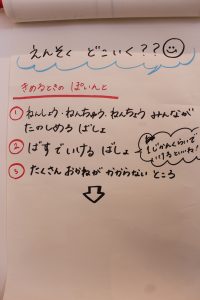 えんそく どこいく??
きめるときの ぽいんと
① ねんしょう・ねんちゅう・ねんちょう みんなが
たのしめる ばしょ
② ばすでいける ばしょ
1じかんくらいで
いけるといいね!
③ たくさん おかねが かからない ところ